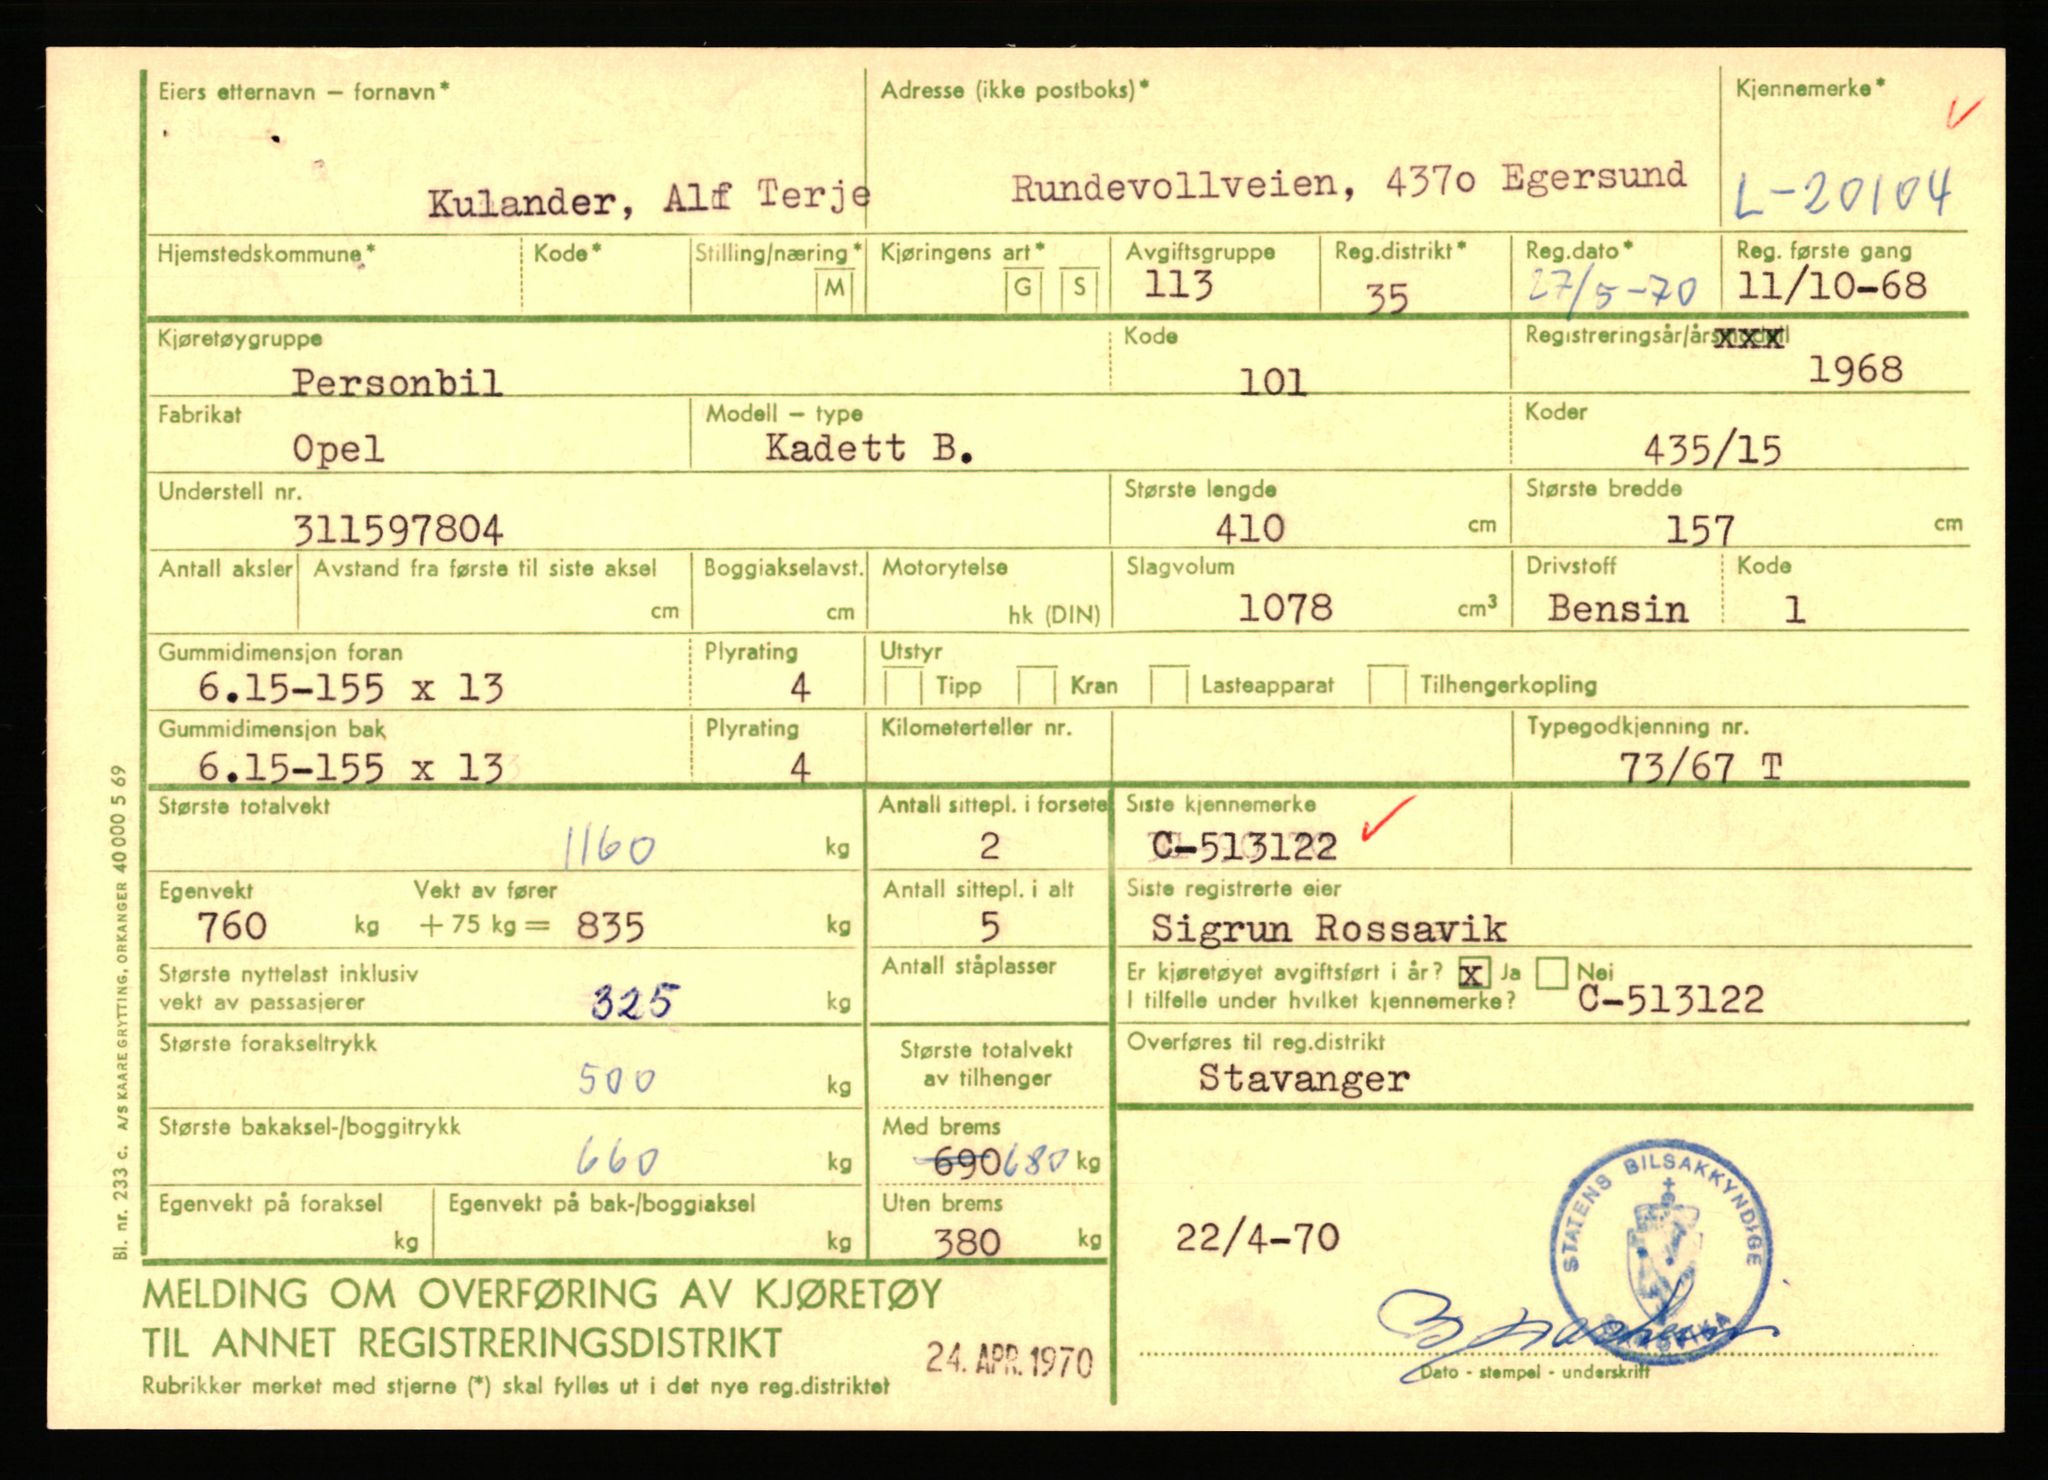 Eiers etternavn – fornavn* Adresse (ikke postboks)* Kjennemerke*
Kulander, Alf Terje Rundevollveien, 437o Egersund L-20104
Hjemstedskommune* Kode* Stilling/næring* Kjøringens art* Avgiftsgruppe Reg.distrikt* Reg.dato* Reg. første gang
M G S 113 35 27/5-70 11/10-68
Kjøretøygruppe Kode Registreringsår/årsmodell
Personbil 101 xxx 1968
Fabrikat Modell – type Koder
Opel Kadett B. 435/15
Understell nr. Største lengde Største bredde
311597804 410 cm 157 cm
Antall aksler Avstand fra første til siste aksel Boggiakselavst. Motorytelse Slagvolum Drivstoff Kode
cm cm hk (DIN) 1078 cm³ Bensin 1
Gummidimensjon foran Plyrating Utstyr
6.15-155 x 13 4 Tipp Kran Lasteapparat Tilhengerkopling
Gummidimensjon bak Plyrating Kilometerteller nr. Typegodkjenning nr.
6.15-155 x 13 4 73/67 T
Største totalvekt Antall sittepl. i forsete Siste kjennemerke
1160 kg 2 C-513122
Egenvekt Vekt av fører Antall sittepl. i alt Siste registrerte eier
760 kg + 75 kg = 835 kg 5 Sigrun Rossavik
Største nyttelast inklusiv Antall ståplasser Er kjøretøyet avgiftsført i år? x Ja Nei
vekt av passasjerer 325 kg I tilfelle under hvilket kjennemerke? C-513122
Største forakseltrykk Største totalvekt Overføres til reg.distrikt
500 kg av tilhenger Stavanger
Største bakaksel-/boggitrykk Med brems
660 kg 690 680 kg
Egenvekt på foraksel Egenvekt på bak-/boggiaksel Uten brems
kg kg 380 kg 22/4-70
STATENS BILSAKKYNDIGE
MELDING OM OVERFØRING AV KJØRETØY
TIL ANNET REGISTRERINGSDISTRIKT 24. APR. 1970
Rubrikker merket med stjerne (*) skal fylles ut i det nye reg.distriktet Dato - stempel - underskrift
Bl. nr. 233 c. A/S KAARE GRYTTING, ORKANGER 40 000 5 69